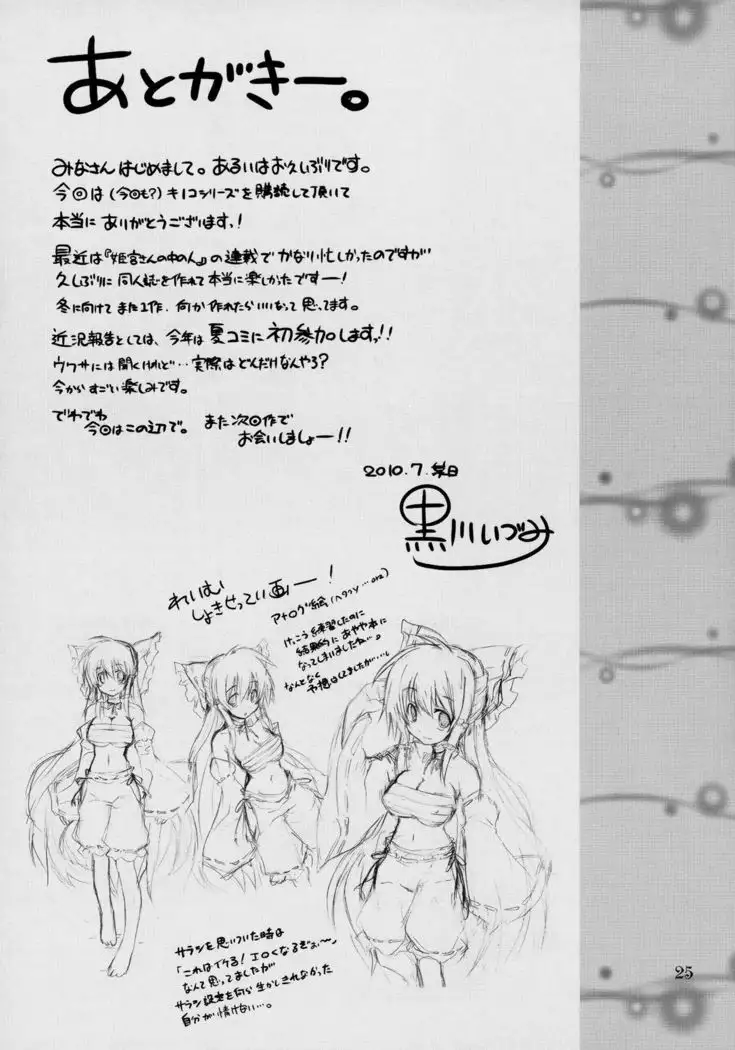 あとがきー。
みなさんはじめまして。あるいはお久しぶりです。
今回は(今回も?)キノコシリーズを購読して頂いて
本当にありがとうございますっ!
最近は『姫宮さんの中の人』の連載でかなり忙しかったのですが
久しぶりに同人誌を作れて本当に楽しかったですー!
冬に向けてまた1作、何か作れたらいいなって思ってます。
近況報告としては、今年は夏コミに初参加しますっ!!
ウワサには聞くけれど‥実際はどんだけなんやろ?
今からすごい楽しみです。
でわでわ
今回はこの辺で。また次回作で
お会いしましょー!!
2010.7.某日
黒川いづみ
れいむ
しょきせってい画ー!
アナログ絵(ヘタッ…orz)
けっこう練習したのに
結果的にあやや本に
なってしまいましたね…。
なんとなく
予想はしてましたが…。
サラシを思いついた時は
「これはイケる!エロくなるぞぉ〜」
なんて思ってましたが
サラシ設定を何ら生かしきれなかった
自分が情けない…。
25